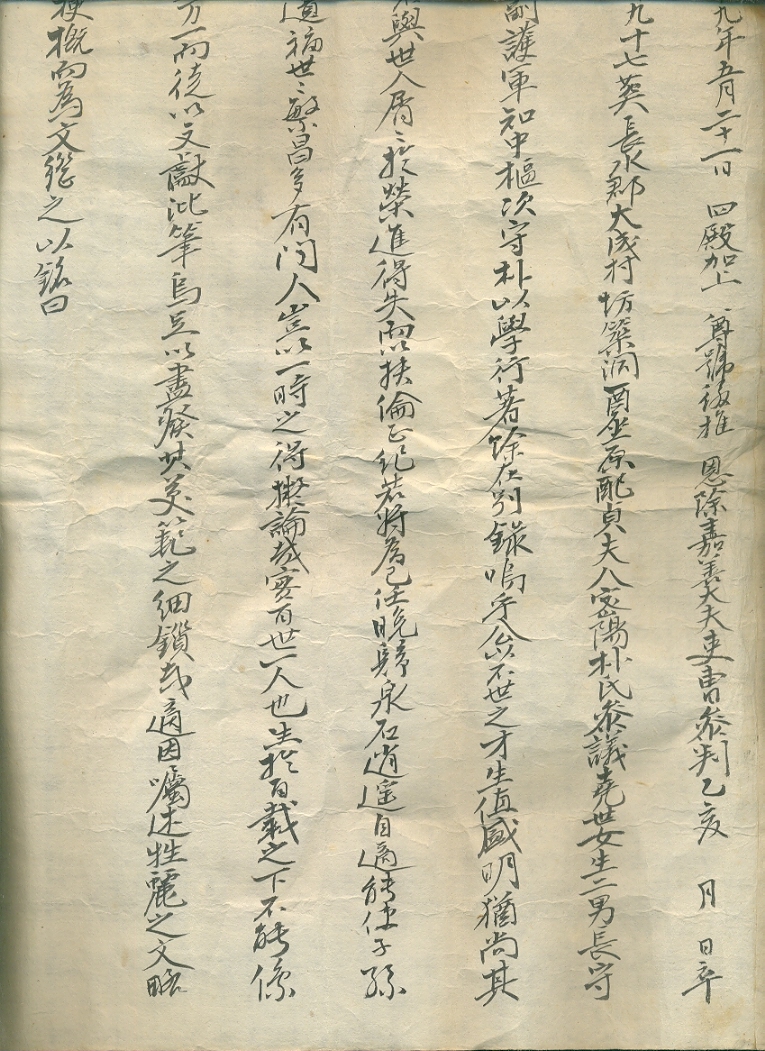 九年五月二十一日 四殿加上 尊號 推 恩除嘉善大夫吏曹參判乙亥 月 日卒
九十七葬長水郡大成村坊築洞酉坐原配貞夫人密陽朴氏參議堯世女生二男長守
副護軍知中樞次守朴以學行著餘在別錄嗚乎公以不世之才生値盛明猶尚其
與世人屑〻於榮進得失而以扶倫正紀若將爲己任晩歸泉石逍遙自適能使子孫
遺福世〻繁昌多有門人豈以一時之得擬論哉實百世一人也生於百載之下不能像
万一而徒以文獻泚筆烏足以盡發其美範之細鎖哉適因囑述牲麗之文略
梗概而爲文繼之以銘曰